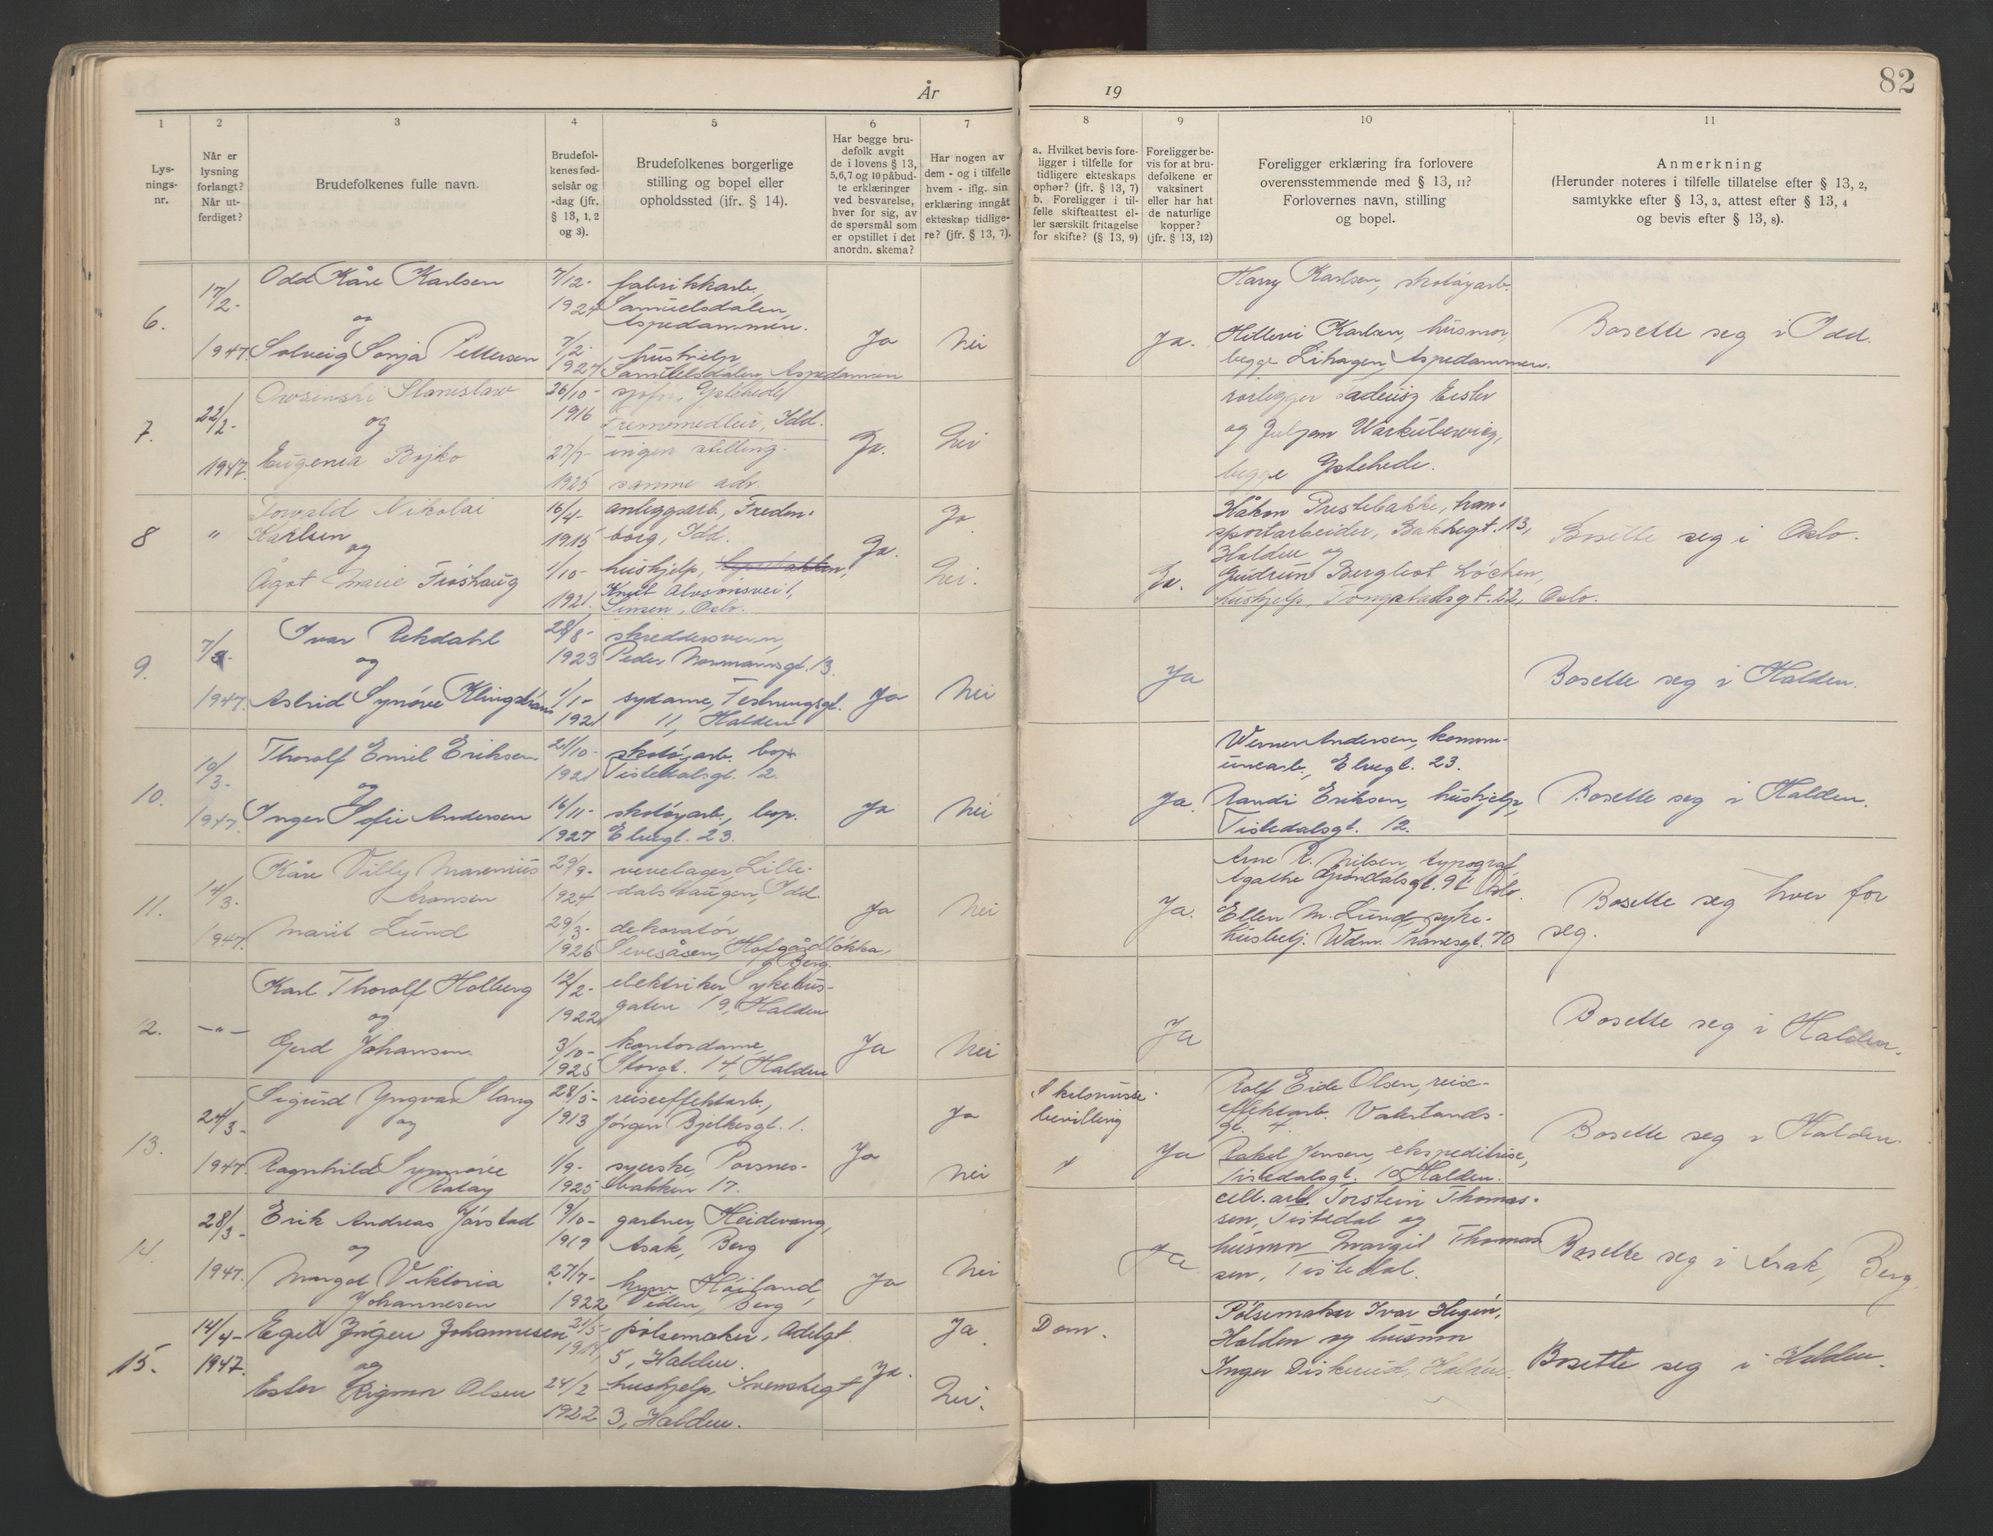 År
19
82
1
2
3
4
5
6
7
8
9
10
11
Lys-
nings-
nr.
Når er
lysning
forlangt?
Når ut-
ferdiget?
Brudefolkenes fulle navn.
Brudefol-
kenes fød-
selsår og
-dag (jfr.
§ 13, 1, 2
og 3).
Brudefolkenes borgerlige
stilling og bopel eller
opholdssted (ifr. § 14).
Har begge bru-
defolk avgit
de i lovens § 13,
5,6,7 og 10 påbud-
te erklæringer
ved besvarelse,
hver for sig, av
de spørsmål som
er opstillet i det
anordn. skema?
Har nogen av
dem - og i tilfelle
hvem - iflg. sin
erklæring inngåt
ekteskap tidlige-
re? (jfr. § 13, 7).
a. Hvilket bevis fore-
ligger i tilfelle for
tidligere ekteskaps
ophør? (jfr. § 13, 7)
b. Foreligger i til-
felle skifteattest el-
ler særskilt fritagelse
for skifte? (§ 13, 9)
Foreligger be-
vis for at bru-
defolkene er
vaksinert
eller har hat
de naturlige
kopper?
(jfr. § 13, 12)
Foreligger erklæring fra forlovere
overensstemmende med § 13, 11?
Forlovernes navn, stilling
og bopel.
Anmerkning
(Herunder noteres i tilfelle tillatelse efter § 13, 2,
samtykke efter § 13, 3, attest efter § 13, 4
og bevis efter § 13, 8).
6.
17/2-
1947
Odd Kåre Karlsen
og
Solveig Sonja Pettersen
7/12-
1924
7/2-
1927
fabrikkarb.,
Samuelsdalen,
Aspedammen.
hushjelp
Samuelsdalen, Aspedammen
Ja
Nei
Ja.
Harry Karlsen, skotøyarb.
Karlsen, husmor,
begge Lihagen, Aspedammen.
Bosette seg i Idd.
7.
22/2-
1947.
Stanislaw
og
Eugenia Bojko
26/10-
1916
27/7-
1925
Ystehede
Idd.
ingen stilling.
samme adr.
Ja.
Nei
rørlegger Tadeusz
og Juljan
begge Ystehede.
8
"
Torvald Nikolai
Karlsen
og
Ågot Marie Frøshaug
16/4-
1915
1/10-
1921.
anleggsarb., Freden-
borg, Idd.
hushjelp,
Knut Alvsønsvei 1,
Sinsen, Oslo.
Ja.
Ja.
Nei.
Ja.
Håkon Prestebakke, tran-
sportarbeider, Bakkegt. 13,
Halden og
Gudrun Bergliot Løcken,
hushjelp, 22, Oslo.
Bosette seg i Oslo.
9.
1947.
Ivar Rekdahl
og
Astrid Synøve
28/8-
1923
1/1-
1921
skreddersvenn,
Peder Normannsgt. 13.
sydame, Festningsgt.
11, Halden
Ja
Nei
Ja
Bosette seg i Halden.
10.
10/3-
1947.
Thorolf Emil Eriksen
og
Inger Sofie Andersen
21/10-
1921
16/11-
1927
skotøyarb. bop.
Tistedalsgt. 12.
skotøyarb., bop.
Elvegt. 23.
Ja
Nei
Ja.
Werner Andersen, komm-
unearb., Elvegt. 23.
Randi Eriksen, hushjelp,
Tistedalsgt. 12.
Bosette seg i Halden.
11.
14/3.
1947.
Kåre Villy Marenius
Aronsen
Marit Lund
29/9-
1924
29/3-
1926
Lille-
dalshaugen, Idd.
dekoratør
Hofgårdløkka,
Berg.
Ja
Nei
Ja.
Arne R. Nilsen, typograf
Agathe Grøndalsgt. Oslo.
Ellen M. Lund syke-
husbetj. Wdm. Tranesgt. 70
Bosette seg hver for
seg.
2.
—"—
Karl Thorolf Holberg
og
Gerd Johansen.
12/2-
1922
3/10-
1925
elektriker Sykehus-
gaten 19, Halden
kontordame,
Storgt. 14, Halden
Ja
Nei
Ja
Bosette seg i Halden.
13.
24/3-
1947.
Sigurd Yngvar Stang
og
Ragnhild Synnøve
28/5-
1913
1/9-
1925
reiseeffektarb.,
Jørgen Bjelkesgt. 1.
syerske, Porsnes-
bakken 17.
Ja
Ja
Nei
Skilsmisse-
bevilling
Ja
Rolf Eide Olsen, reise-
effektarb. Vaterlands-
gt. 4.
Rakel Jensen, ekspeditrise,
Tistedalsgt. 10 Halden.
Bosette seg i Halden.
14.
28/3-
1947.
Erik Andreas Jørstad
og
Margot Viktoria
Johannesen
9/10-
1919
27/7-
1922
gartner, Heidevang,
Asak, Berg
Høiland,
Veden, Berg
Ja
Nei
Ja
cell. arb. Torstein Thomas-
sen, Tistedal og
husmor Margit Thomas-
sen, Tistedal.
Bosette seg i Asak, Berg.
15.
14/4-
1947.
Egil Jørgen Johannesen
og
Ester Rigmor Olsen
21/5-
24/2
1922
pølsemaker, Adelgt.
5, Halden.
hushjelp, Svenskegt
3, Halden.
Ja.
Ja
Nei.
Dom.
Pølsemaker Ivar Hegen,
Halden og husmor
Inger Diskerud, Halden.
Bosette seg i Halden.